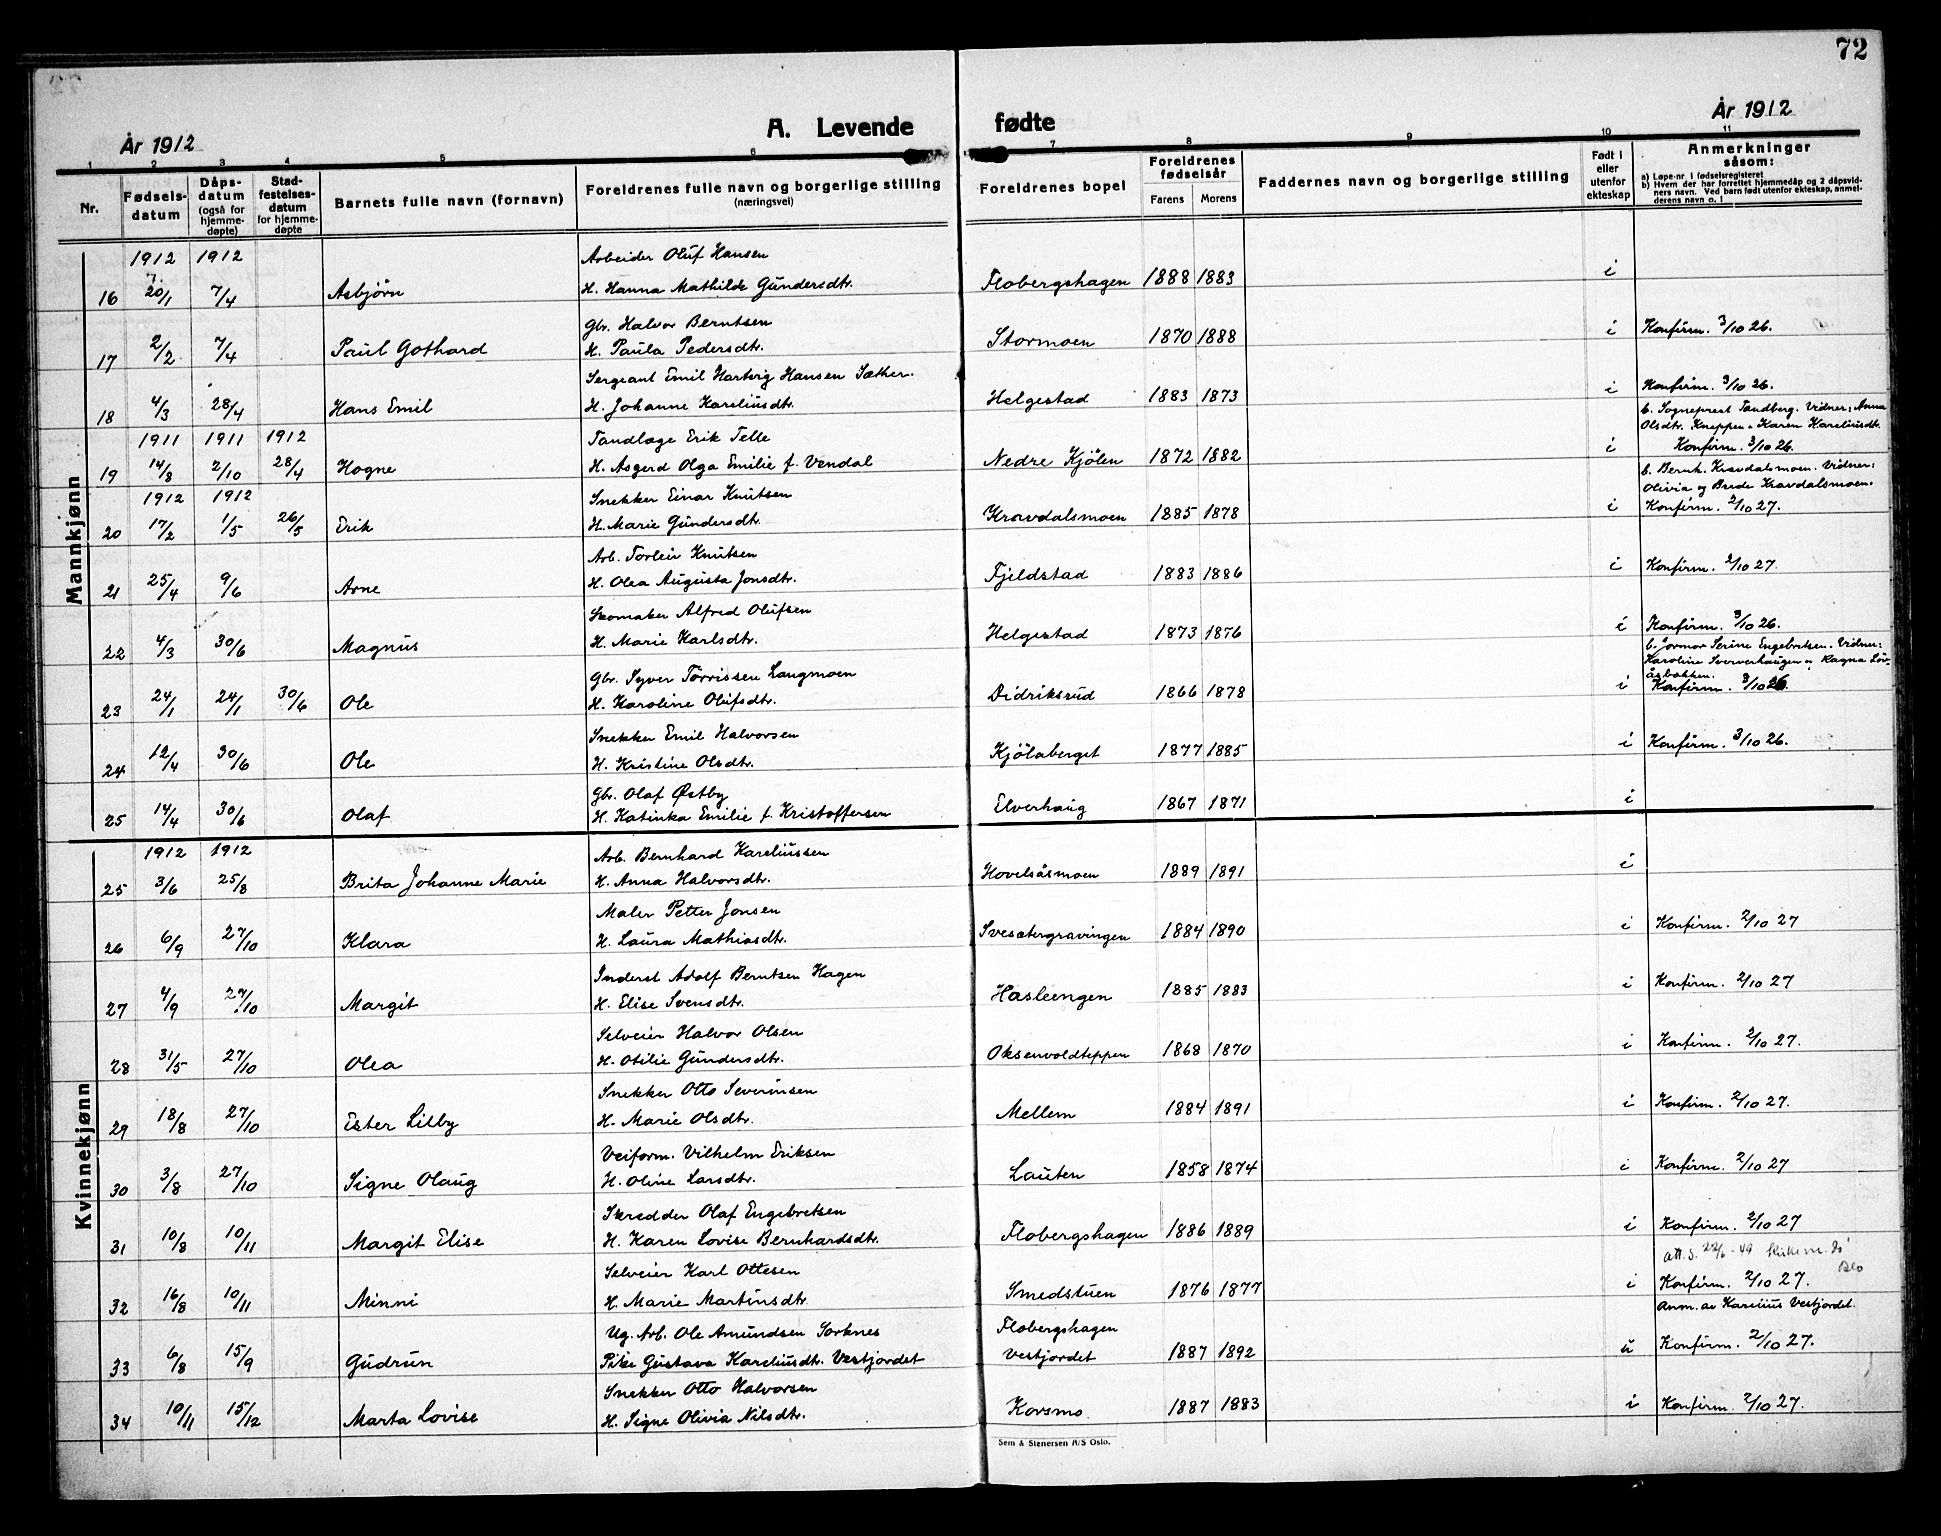 72
År 1912
A. Levende fødte
År 1912
1 2 3 4 5 6 7 8 9 10 11
Nr. Fødselsdatum Dåpsdatum (også for hjemmedøpte) Stadfestelsesdatum for hjemmedøpte Barnets fulle navn (fornavn) Foreldrenes fulle navn og borgerlige stilling (næringsvei) Foreldrenes bopel Foreldrenes fødselsår Farens Morens Faddernes navn og borgerlige stilling Født i eller utenfor ekteskap Anmerkninger såsom:
a) Løpe-nr. i fødselsregisteret
b) Hvem der har forrettet hjemmedåp og 2 dåpsvidners navn. Ved barn født utenfor ekteskap, anmelderens navn o. l
Mannkjønn
1912 1912 Arbeider Oluf Hansen
16 20/1 7/4 Asbjørn H. Hanna Mathilde Gundersdtr. Flobergshagen 1888 1883 i
Gbr. Halvor Berntsen
17 2/2 7/4 Paul Gothard H. Paula Pedersdtr. Stormoen 1870 1888 i Konfirm. 3/10 26.
Sergeant Emil Hartvig Hansen Sæther.
18 4/3 28/4 Hans Emil H. Johanne Kareliusdtr. Helgestad 1883 1873 i Konfirm. 3/10 26.
b. Sogneprest Tandberg. Vidner: Anna
Olsdtr. Kneppen o Karen Kareliusdtr.
1911 1911 1912 Tandlæge Erik Telle
19 14/8 2/10 28/4 Hogne H. Asgerd Olga Emilie f. Vendal Nedre Kjølen 1872 1882 i Konfirm. 3/10 26.
b. Bernh. Kravdalsmoen. Vidner:
Olivia og Brede Kravdalsmoen.
1912 1912 Snekker Einar Knutsen
20 17/2 1/5 26/5 Erik H. Marie Gundersdtr. Kravdalsmoen 1885 1878 i Konfirm. 2/10 27.
Arb. Torleir Knutsen
21 25/4 9/6 Arne H. Olea Augusta Jonsdtr. Fjeldstad 1883 1886 i Konfirm. 2/10 27.
Skomaker Alfred Olufsen
22 4/3 30/6 Magnus H. Marie Karlsdtr. Helgestad 1873 1876 i Konfirm. 3/10 26.
b. Jormor Serine Engebretsen. Vidner:
Karoline Ragna
Gbr. Syver Tørrissen Langmoen
23 24/1 24/1 30/6 Ole H. Karoline Olufsdtr. Didriksrud 1866 1878 i Konfirm. 3/10 26.
Snekker Emil Halvorsen
24 12/4 30/6 Ole H. Kristine Olsdtr. Kjølaberget 1877 1885 i Konfirm. 3/10 26.
Gbr. Olaf Østby
25 14/4 30/6 Olaf H. Katinka Emilie f. Kristoffersen Elverhaug 1867 1871 i
Kvinnekjønn
1912 1912 Arb. Bernhard Kareliussen
25 3/6 25/8 Brita Johanne Marie H. Anna Halvorsdtr. Hovelsåsmoen 1889 1891 i
Maler Petter Jonsen
26 6/9 27/10 Klara H. Laura Mathiasdtr. Svesætergravingen 1884 1890 i Konfirm. 2/10 27
Inderst Adolf Berntsen Hagen
27 4/9 27/10 Margit H. Elise Svensdtr. Hasleengen 1885 1883 i Konfirm. 2/10 27
Selveier Halvor Olsen
28 31/5 27/10 Olea H. Otilie Gundersdtr. Oksenvoldteppen 1868 1870 i Konfirm. 2/10 27.
Snekker Otto Severinsen
29 18/8 27/10 Ester Lilby H. Marie Olsdtr. Mellem 1884 1891 i Konfirm. 2/10 27.
Veiform. Vilhelm Eriksen
30 3/8 27/10 Signe Olaug H. Oline Larsdtr. Lauten 1858 1874 i Konfirm. 2/10 27
Skredder Olaf Engebretsen
31 10/8 10/11 Margit Elise H. Karen Lovise Bernhardsdtr. Flobergshagen 1886 1889 i Konfirm. 2/10 27
Att. S. 22/6-49
Selveier Karl Ottesen
32 16/8 10/11 Minni H. Marie Martinsdtr. Smedstuen 1876 1877 i Konfirm. 2/10 27.
Anm. av Karelius Vestjordet.
Ug. Arb. Ole Amundsen Sorknes Flobergshagen
33 6/8 15/9 Gudrun Pike Gustava Kareliusdtr. Vestjordet Vestjordet 1887 1892 u Konfirm. 2/10 27.
Snekker Otto Halvorsen
34 10/11 15/12 Marta Lovise H. Signe Olivia Nilsdtr. Korsmo 1887 1883 i Konfirm. 2/10 27.
Sem & Stenersen A/S Oslo.